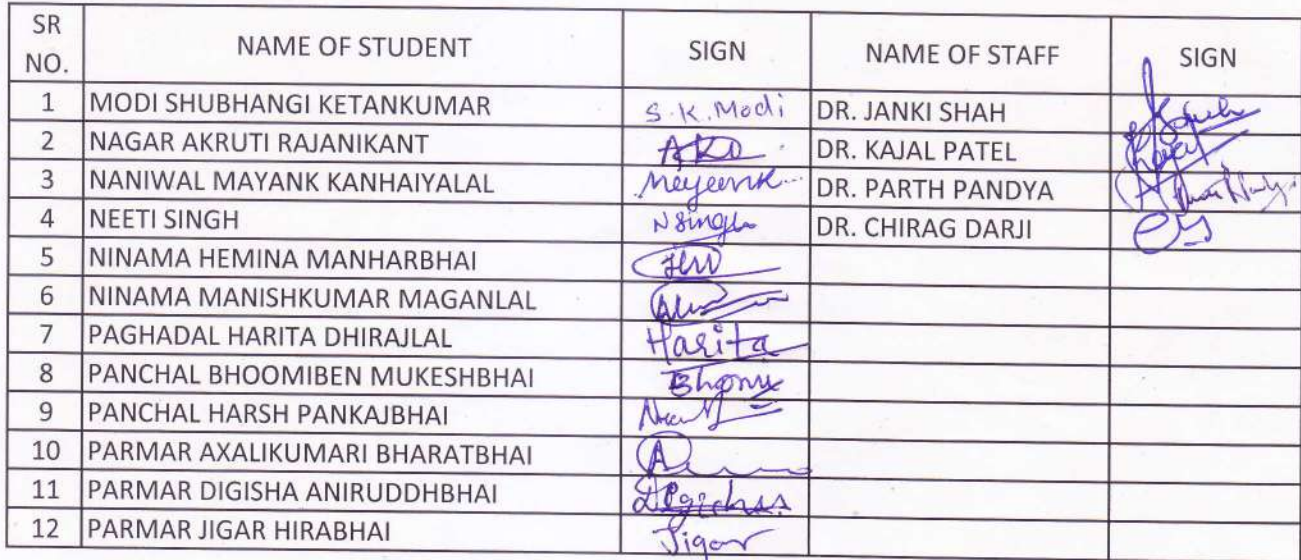 SR NO. NAME OF STUDENT SIGN NAME OF STAFF SIGN
1 MODI SHUBHANGI KETANKUMAR S.K.Modi DR. JANKI SHAH
2 NAGAR AKRUTI RAJANIKANT DR. KAJAL PATEL
3 NANIWAL MAYANK KANHAIYALAL DR. PARTH PANDYA
4 NEETI SINGH NSingh DR. CHIRAG DARJI
5 NINAMA HEMINA MANHARBHAI
6 NINAMA MANISHKUMAR MAGANLAL
7 PAGHADAL HARITA DHIRAJLAL Harita
8 PANCHAL BHOOMIBEN MUKESHBHAI
9 PANCHAL HARSH PANKAJBHAI
10 PARMAR AXALIKUMARI BHARATBHAI
11 PARMAR DIGISHA ANIRUDDHBHAI
12 PARMAR JIGAR HIRABHAI Jigar